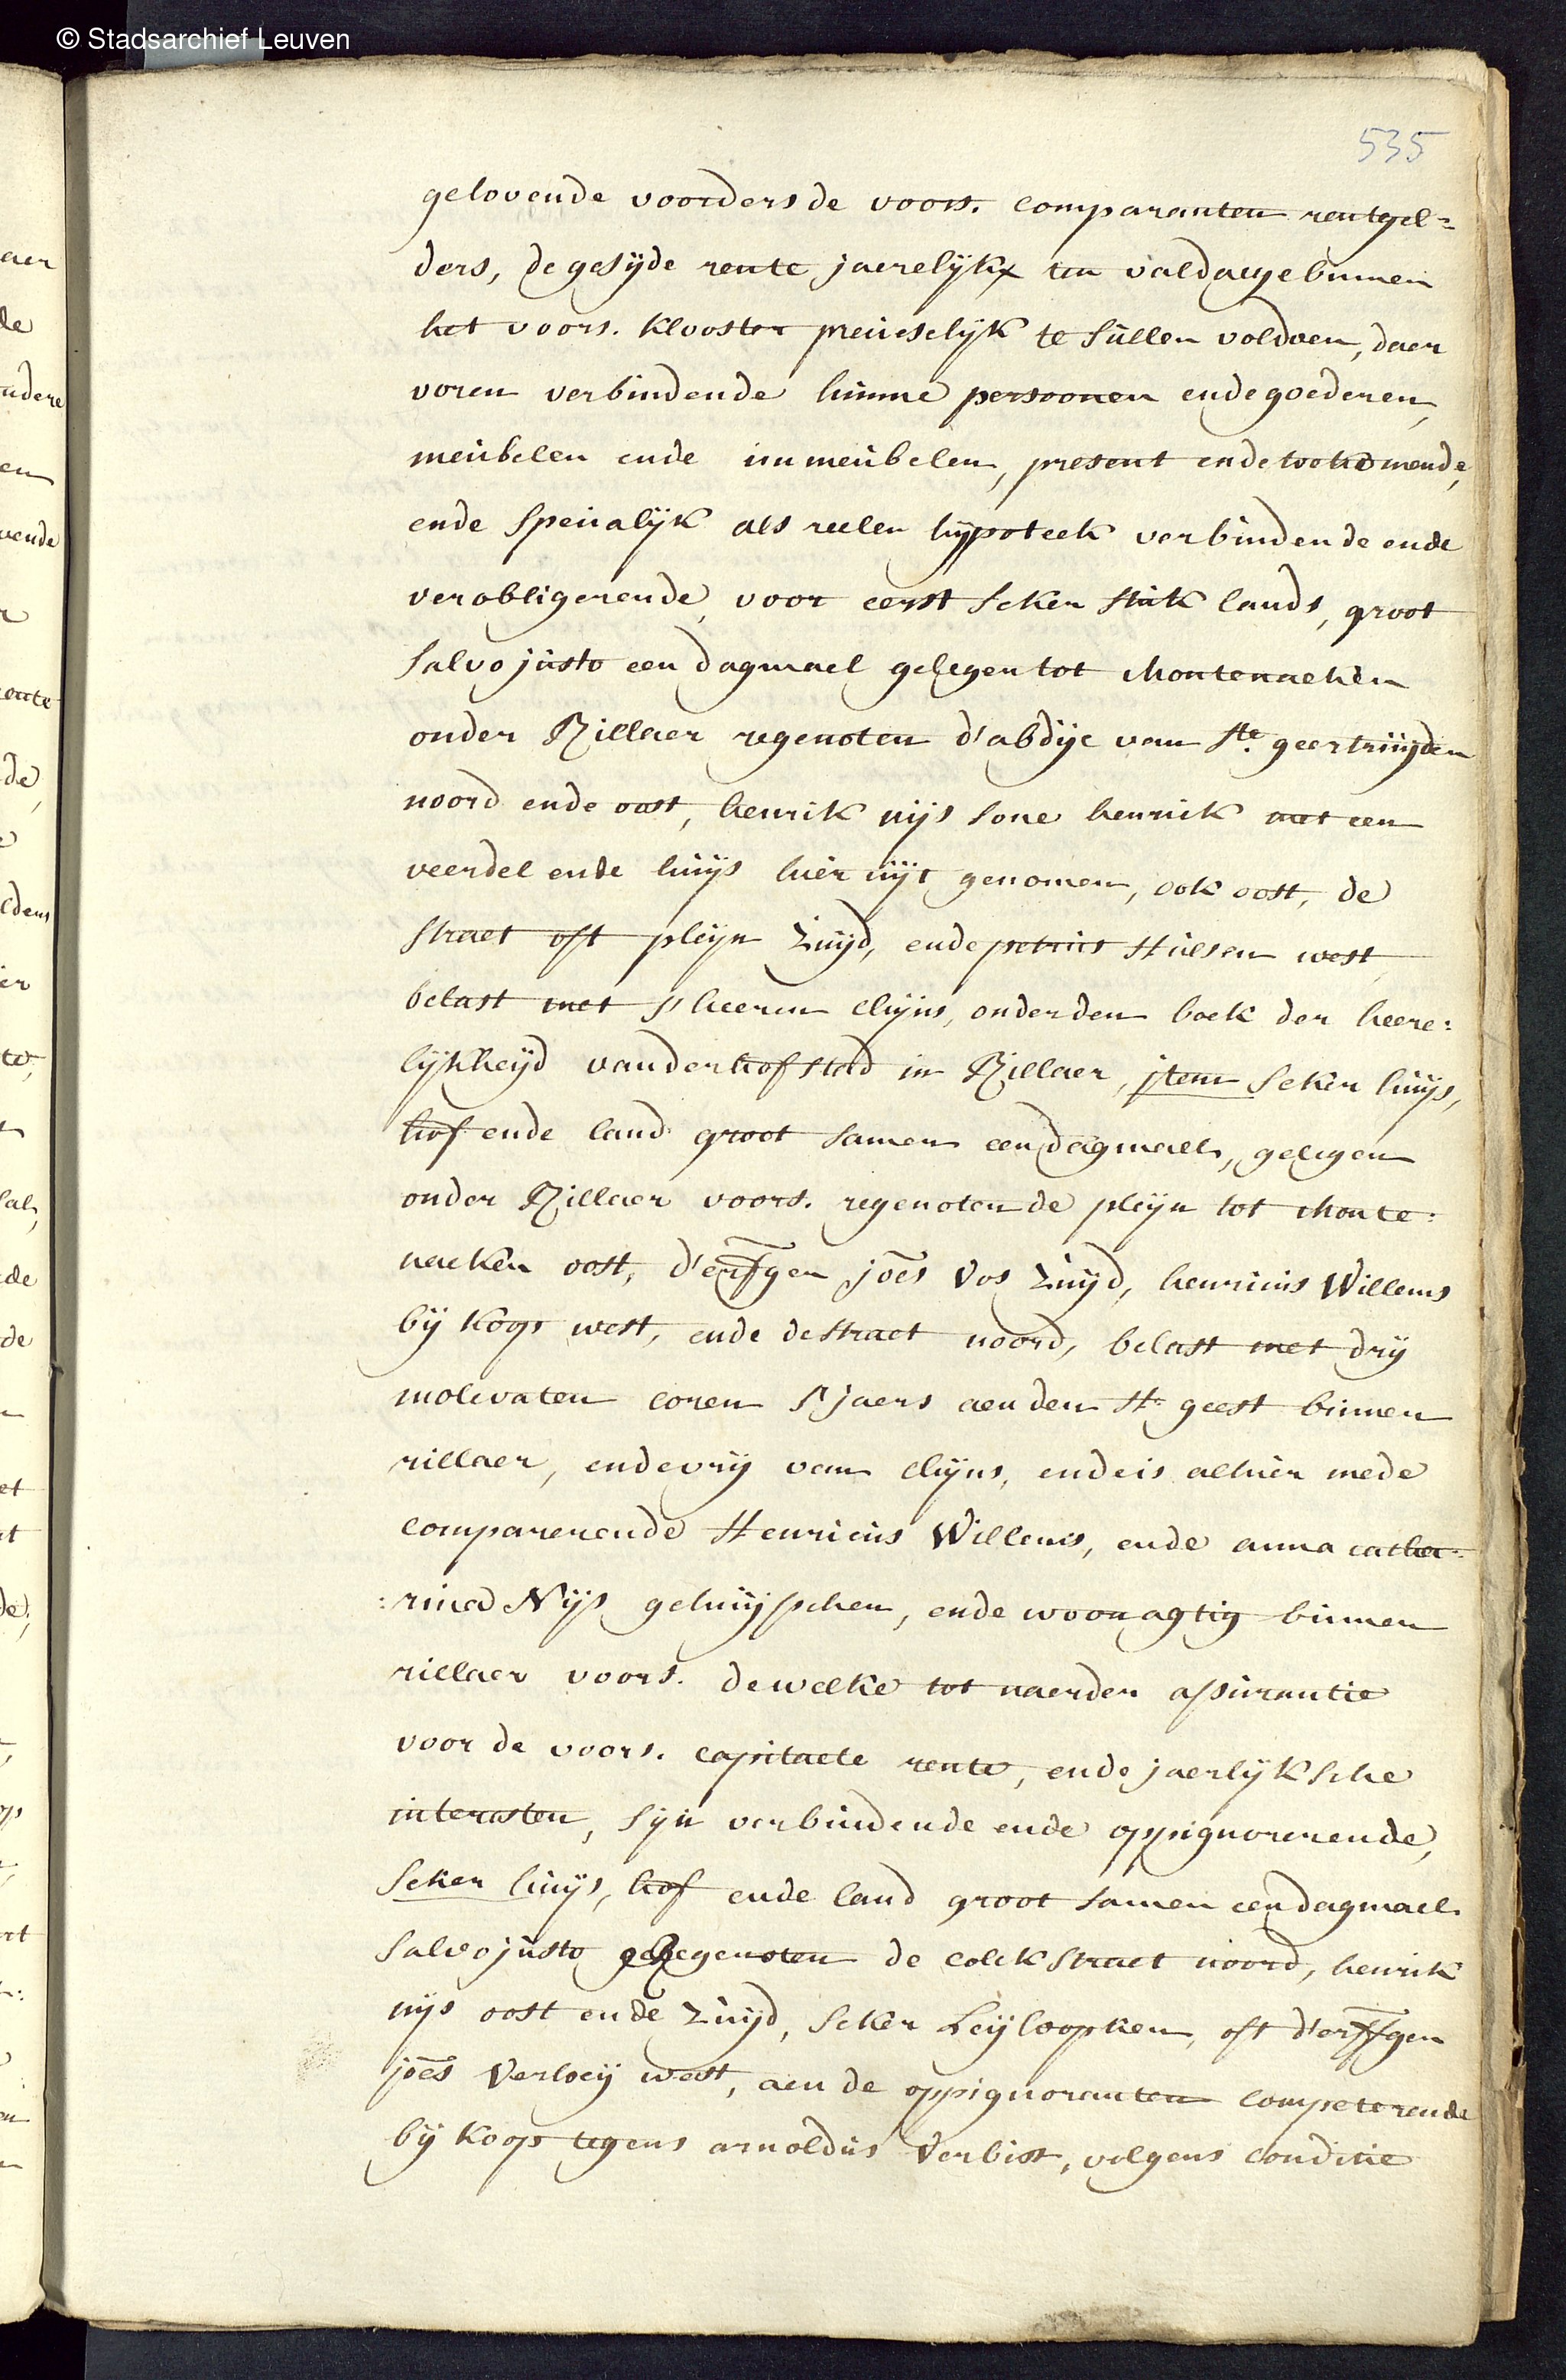 © Stadsarchief Leuven
535
gelovende voorders de voors. comparanten rentgel=
ders, de geseijde rente jaerelijkx ten valdaege binnen
het voors. klooster precieselijk te sullen voldoen, daer
voren verbindende hunne persoonen ende goederen,
meubelen ende immeubelen, present ende toekomende,
ende specialijk als reelen hijpoteek verbindende ende
verobligerende, voor eerst seker stuk lands, groot
salvo justo een dagmael gelegen tot Montenaeken
onder Rillaer regenoten d'abdije van Ste. geertruijden
noord ende oost, henrik nijs sone henrik met een
veerdel ende huijs hier uijt genomen, ook oost, de
straet oft pleijn zuijd, ende petrus Hulsen west
belast met s'heeren chijns, onder den boek der heere:
lijkheijd van der hofstad in Rillaer, jtem seker huijs,
hof ende land groot samen een dagmael, gelegen
onder Rillaer voors. regenoten de pleijn tot Monte:
naeken oost, d'erfgen joēs Vos zuijd, henricus Willems
bij koop west, ende de straet noord, belast met drij
molevaten coren s'jaers aen den H. geest binnen
rillaer, ende vrij van chijns, ende is alhier mede
comparerende Henricus Willems, ende anna catha:
:rina Nijs gehuijsschen, ende woonagtig binnen
rillaer voors. dewelke tot naerder assurantie
voor de voors. capitaele rente, ende jaerlijksche
interesten, sijn verbindende ende oppignorerende,
seker huijs, hof ende land groot samen een dagmael
salvo justo regenoten de colckstraet noord, henrik
nijs oost ende zuijd, seker Leijloopken, oft d'erffgen
joēs Verloeij west, aen de oppignoranten competerende
bij koop tegens arnoldus Verbist, volgens conditie